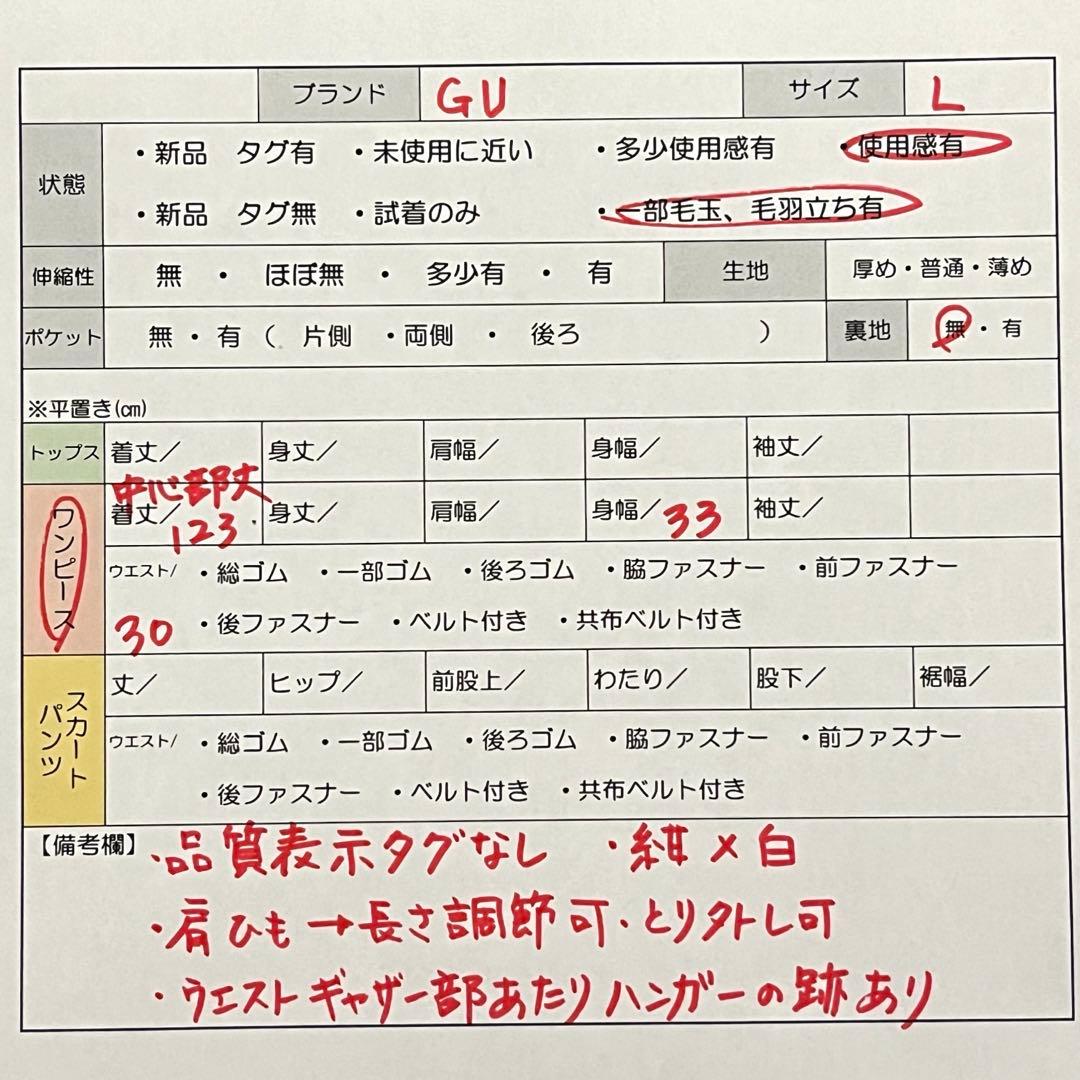 ブランド GU サイズ L
状態 ・新品 タグ有 ・未使用に近い ・多少使用感有 ・使用感有
・新品 タグ無 ・試着のみ ・一部毛玉、毛羽立ち有
伸縮性 無 ・ ほぼ無 ・ 多少有 ・ 有 生地 厚め・普通・薄め
ポケット 無 ・ 有 ( 片側 ・両側 ・ 後ろ ) 裏地 無 ・ 有
※平置き(cm)
トップス 着丈/ 身丈/ 肩幅/ 身幅/ 袖丈/
中心部丈
ワンピース 着丈/123 身丈/ 肩幅/ 身幅/33 袖丈/
ウエスト/ ・総ゴム ・一部ゴム ・後ろゴム ・脇ファスナー ・前ファスナー
30 ・後ファスナー ・ベルト付き ・共布ベルト付き
スカート パンツ 丈/ ヒップ/ 前股上/ わたり/ 股下/ 裾幅/
ウエスト/ ・総ゴム ・一部ゴム ・後ろゴム ・脇ファスナー ・前ファスナー
・後ファスナー ・ベルト付き ・共布ベルト付き
【備考欄】 ・品質表示タグなし ・紺×白
・肩ひも→長さ調節可・とり外し可
・ウエストギャザー部あたりハンガーの跡あり